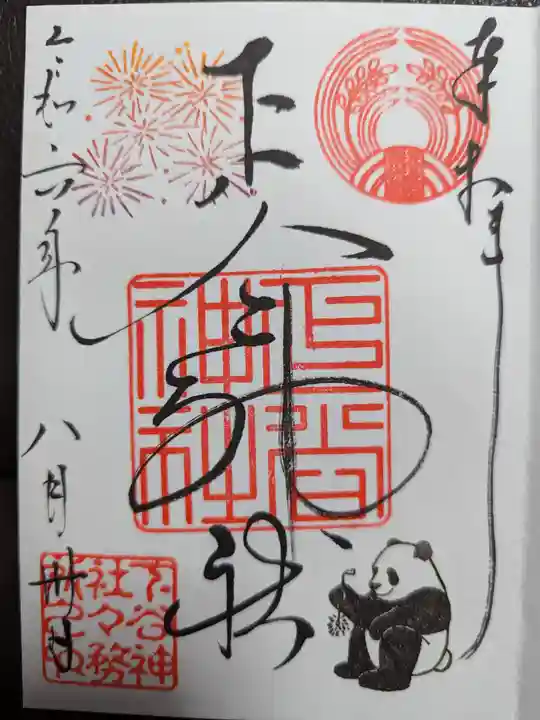 奉拝
下谷神社
下谷
神社
令和六年
八月卅日
下谷神
社々務